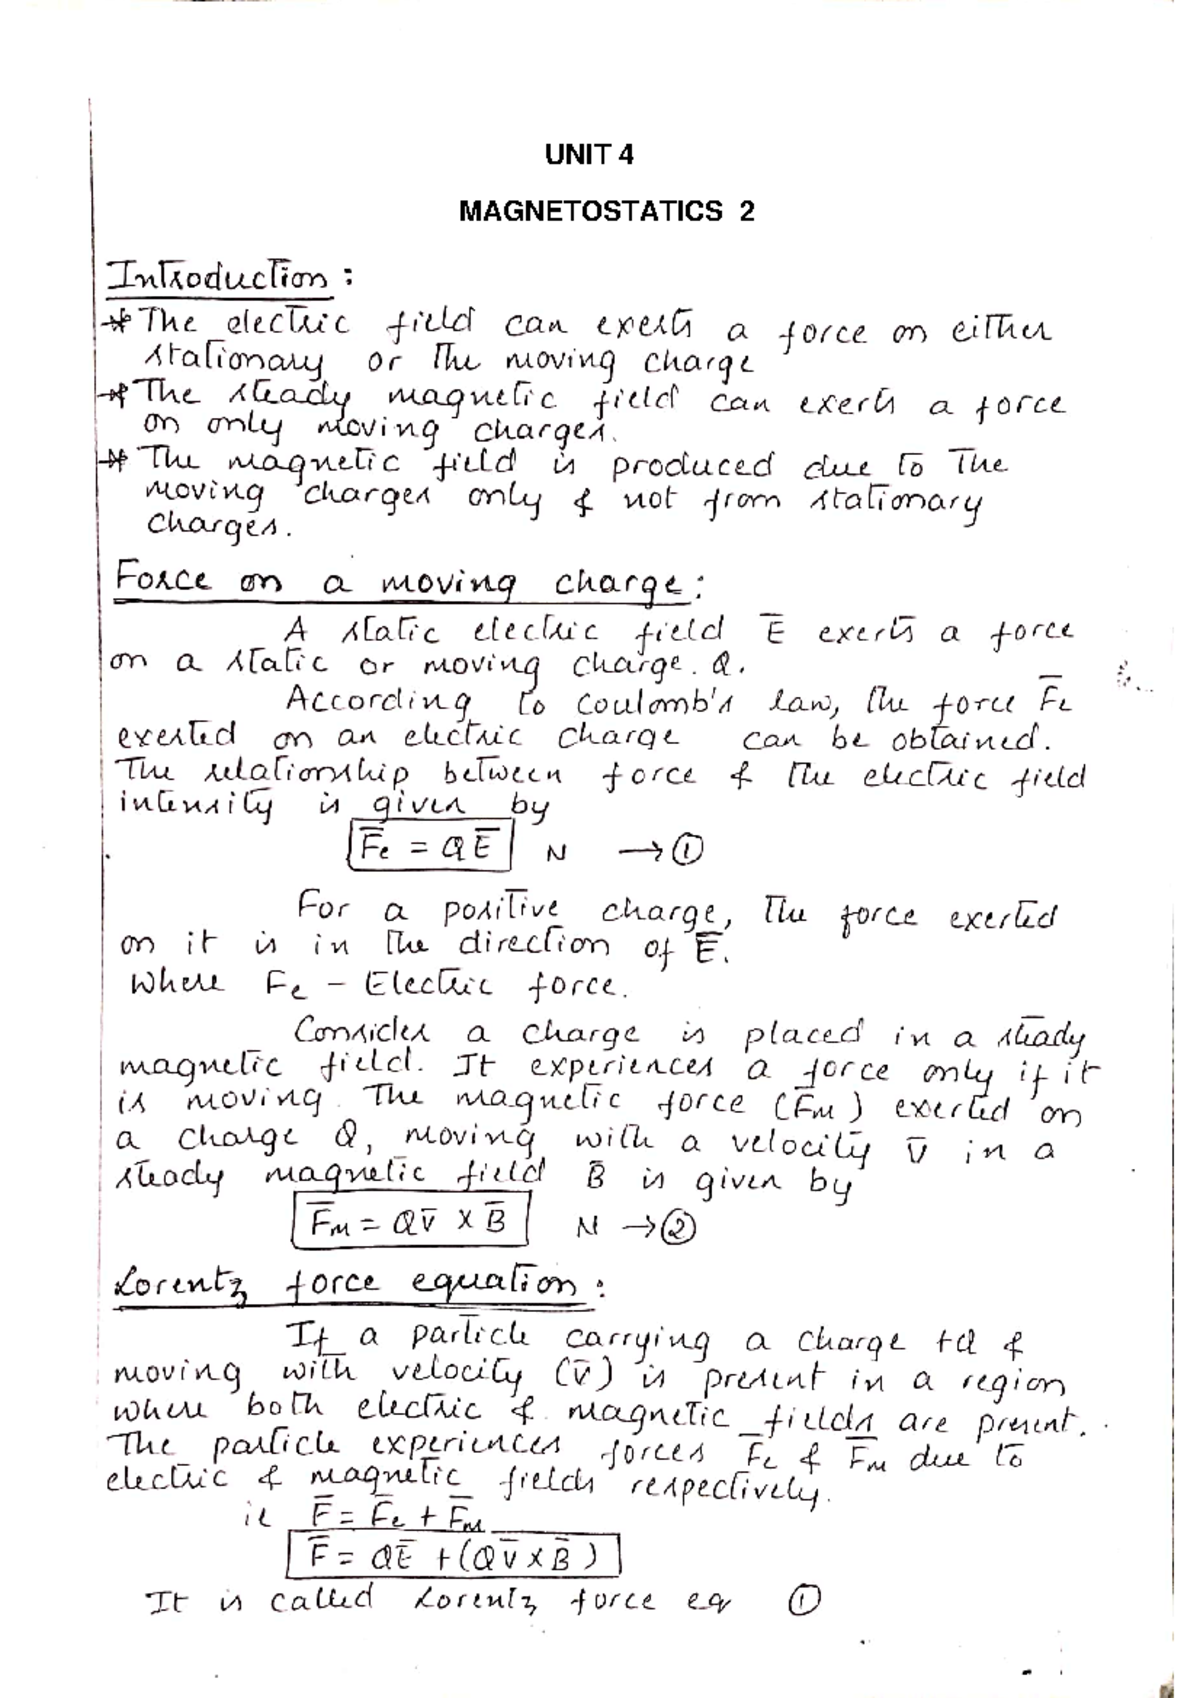 UNIT 4
MAGNETOSTATICS 2
Introduction :
* The electric field can exerts a force on either
stationary or the moving charge
* The steady magnetic field can exerts a force
on only moving charges.
* The magnetic field is produced due to the
moving charges only & not from stationary
charges.
Force on a moving charge :
A static electric field E̅ exerts a force
on a static or moving charge. Q.
According to Coulomb's law, the force F̅e
exerted on an electric charge can be obtained.
The relationship between force & the electric field
intensity is given by
F̅e = Q E̅ N → ①
For a positive charge, the force exerted
on it is in the direction of E̅.
where Fe - Electric force.
Consider a charge is placed in a steady
magnetic field. It experiences a force only if it
is moving. The magnetic force (F̅m) exerted on
a charge Q, moving with a velocity v̅ in a
steady magnetic field B̅ is given by
F̅m = Q v̅ × B̅ N → ②
Lorentz force equation :
If a particle carrying a charge +Q &
moving with velocity (v̅) is present in a region
where both electric & magnetic fields are present.
The particle experiences forces F̅e & F̅m due to
electric & magnetic fields respectively.
ie F̅ = F̅e + F̅m
F̅ = QE̅ + (Q v̅ × B̅)
It is called Lorentz force eq ①